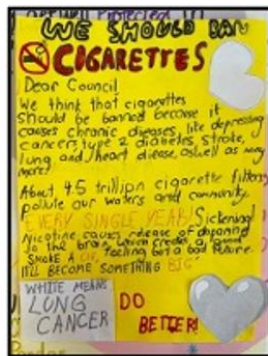 WE SHOULD BAN
CIGARETTES
Dear Council
We think that cigarettes
should be banned because it
causes chronic diseases, like depressing
cancers, type 2 diabetes, stroke,
lung and heart diease, aswell as many
more!
About 4.5 trillion cigarette filters
pollute our waters and community
EVERY SINGLE YEAR! Sickening!
Nicotine causes release of dopamine
in the brain, which creates a good
feeling but a bad future.
SMOKE A CIG,
IT'LL BECOME SOMETHING BIG
WHITE MEANS
LUNG
CANCER
DO
BETTER!